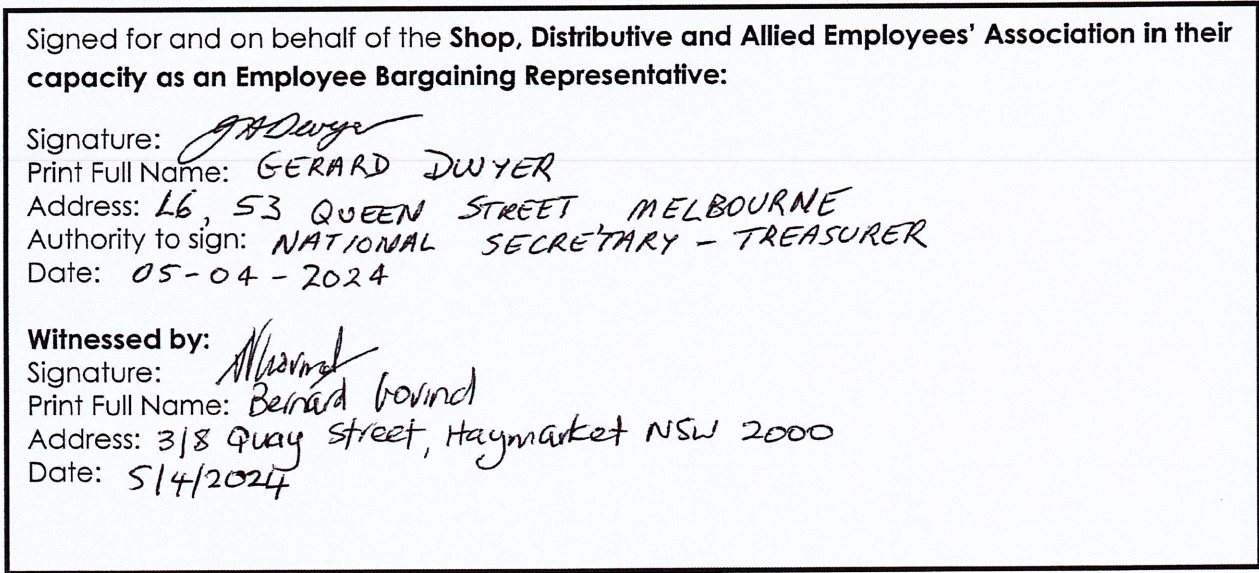 Signed for and on behalf of the Shop, Distributive and Allied Employees' Association in their
capacity as an Employee Bargaining Representative:
Signature: GADwyer
Print Full Name: GERARD DWYER
Address: L6, 53 QUEEN STREET, MELBOURNE
Authority to sign: NATIONAL SECRETARY - TREASURER
Date: 05-04-2024
Witnessed by:
Signature:
Print Full Name: Bernard Govind
Address: 3/8 Quay Street, Haymarket NSW 2000
Date: 5/4/2024